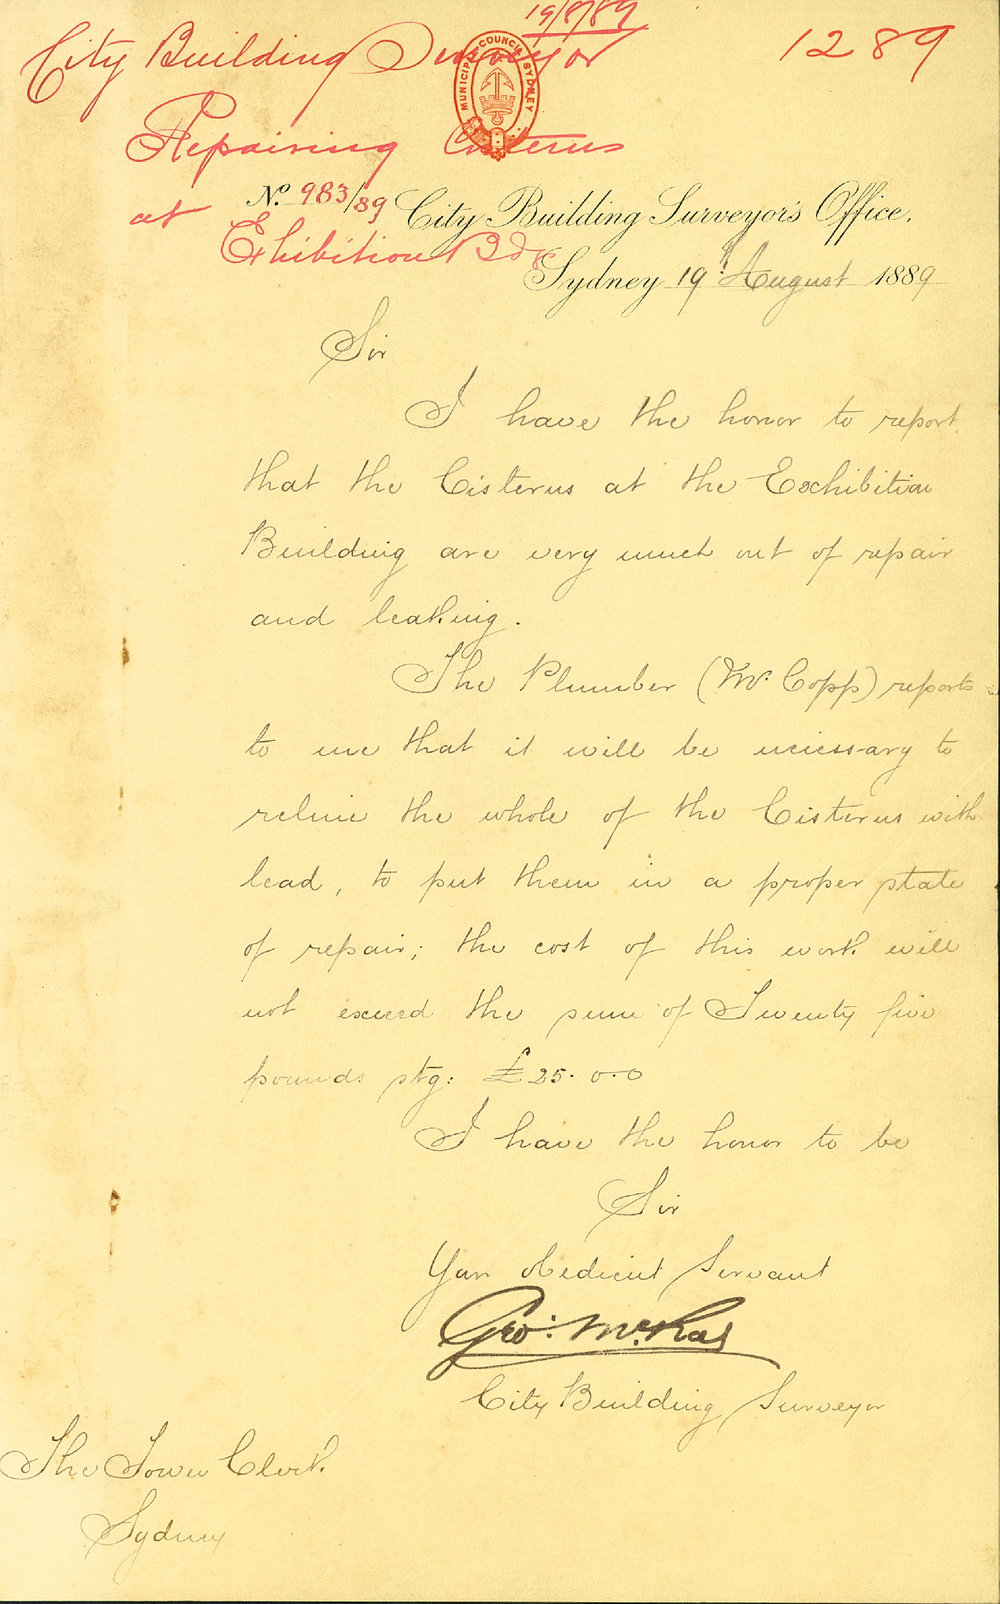 19/8/89
City Building Surveyor
1289
MUNICIPAL COUNCIL SYDNEY
Repairing Cisterns
at
Exhibition Bdg
No. 983/89 City Building Surveyor's Office,
Sydney 19th August 1889
Sir
I have the honor to report
that the Cisterns at the Exhibition
Building are very much out of repair
and leaking.
The Plumber (Mr. Copp) reports
to me that it will be necessary to
reline the whole of the Cisterns with
lead, to put them in a proper state
of repair; the cost of this work will
not exceed the sum of Twenty five
pounds stg: £25.0.0
I have the honor to be
Sir
Your obedient Servant
Geo: McRae
City Building Surveyor
The Town Clerk
Sydney